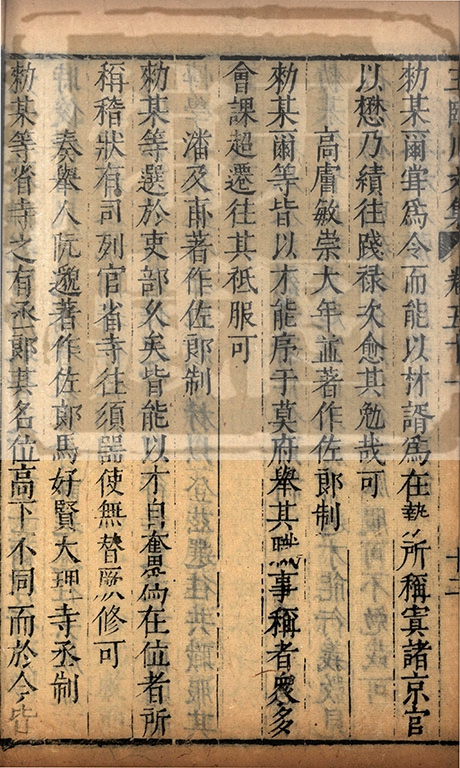 王臨川文集 卷五十一 十二
勑某爾嘗爲令而能以材諝爲在執所稱寘諸京官
以懋乃績往踐祿次愈其勉哉可
高膚敏崇大年並著作佐郎制
勑某爾等皆以才能序于莫府舉其職事稱者衆多
會課超遷往其祗服可
潘及甫著作佐郎制
勑某等選於吏部久矣皆能以才自奮爲在位者所
稱稽狀有司列官省寺往須器使無替厥修可
奏舉人阮邈著作佐郎馬好賢大理寺丞制
勑某等省寺之有丞郎其名位高下不同而於今皆